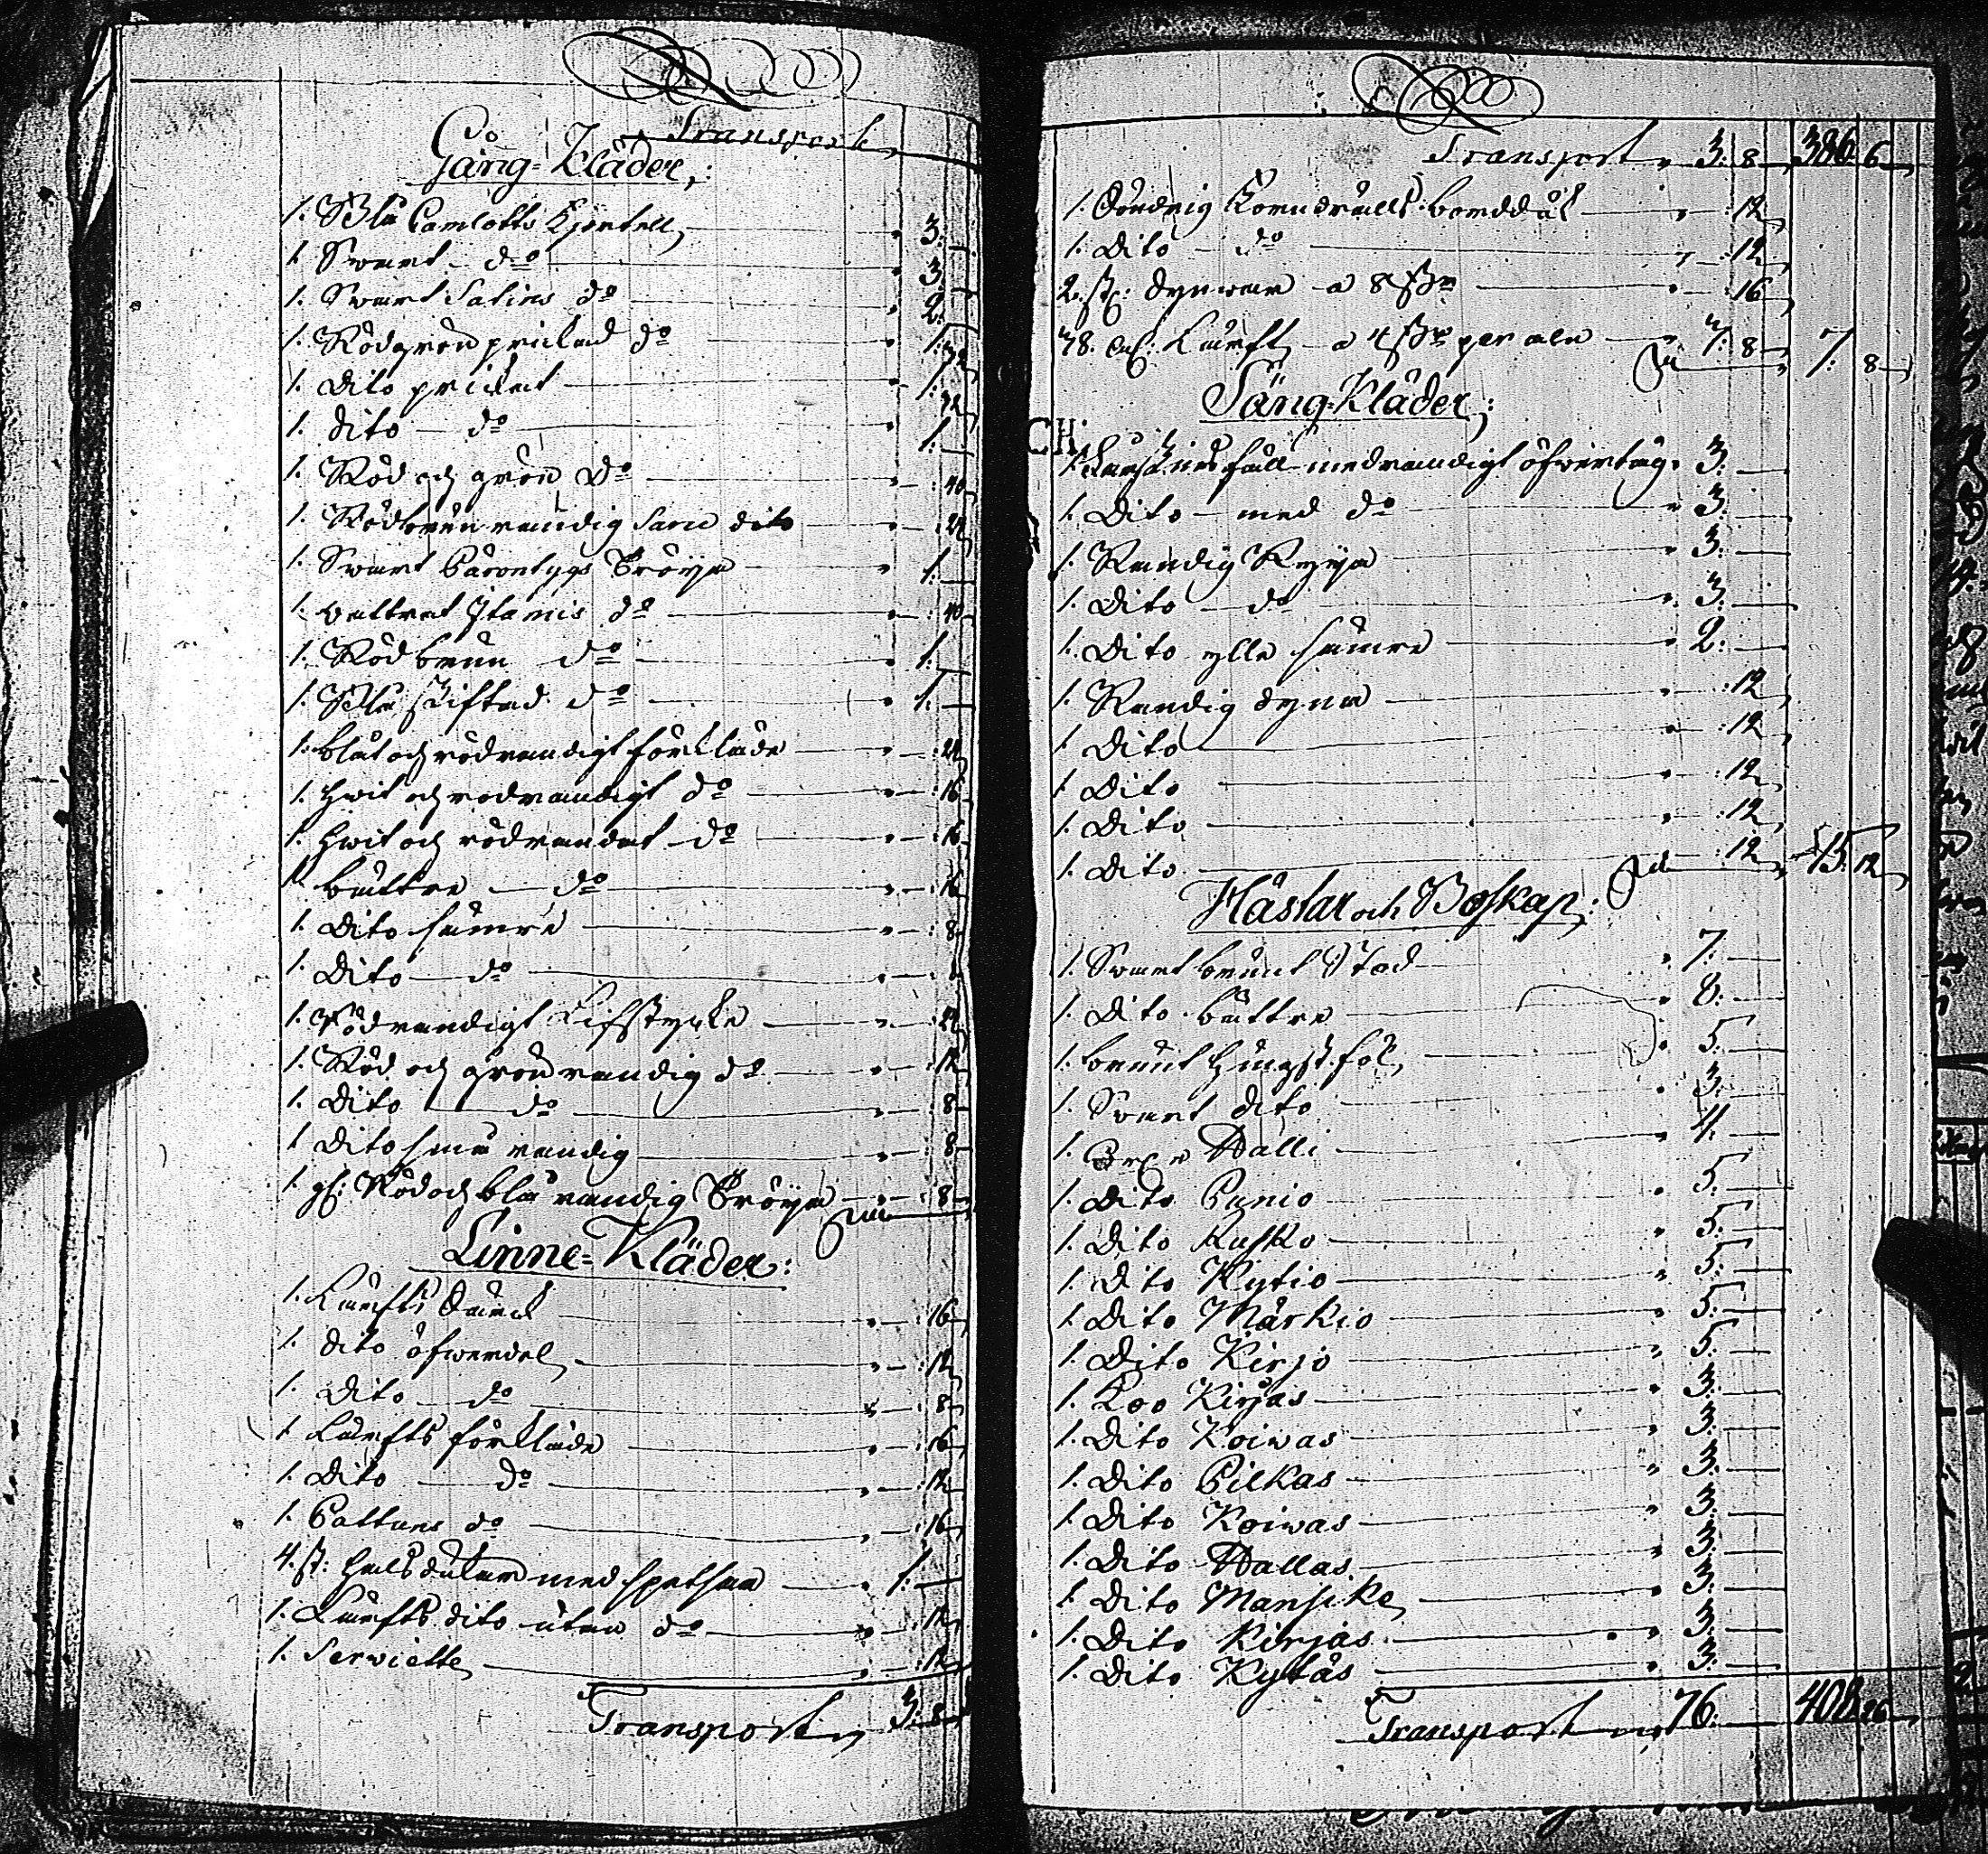 Transport
Gång-Kläder,:
1. Blå Camlotts Kjortell, 3:
1. Swart d:o 3.
1. Swart Satins d:o 2:
1. Rödgrön prickad d:o 1: 32
1. Dito prickat 1: 32
1. dito d:o 1:
1. Röd och grön d:o : 40
1. Rödbrun randig dito : 24
1. Swart Tröya 1:
1. d:o : 40
1. Rödbrun d:o 1:
1. Blå skiftad d:o 1:
1. blåt och rödrandigt förkläde : 24
1. hwit och rödrandigt d:o : 16
1. hwit och rödrandat d:o : 16
1. bättre d:o : 16
1. Dito sämre : 8
1. Dito d:o : 8
1. Rödrandigt Lifstycke : 24
1. Röd och grönrandig d:o : 12
1. Dito d:o : 8
1. Dito små randig : 8
1. gl: Röd och blå randig Tröya : 8
Linne-Kläder:
1. Lärfts : 16
1. dito öfwerdel : 12
1. Dito d:o : 8
1. Lärfts förkläde : 16
1. Dito d:o : 12
1. Cattuns d:o : 16
4. st: halsdukar med spetsar 1:
1. Lärfts dito utan d:o : 12
1. Serviette : 12
Transport 3: 8
Transport 3: 8 386. 6
1. borddük : 12
1. Dito d:o : 12
2. st: dynwar a 8 : 16
78. aln: Lärft a 4 per aln 7: 8 7: 8
Säng-Kläder,:
1. fäll med randigt öfwertåg 3:
1. Dito med d:o 3:
1. Randig Ryya 3:
1. Dito d:o 3:
1. Dito ylle sämre 2:
1. Randig dyna : 12
1. Dito : 12
1. Dito : 12
1. Dito : 12
1. Dito : 12 15. 12
Hästar och Boskap:
1. Swartbrunt Stod 7:
1. Dito bättre 8:
1. brunt hingst föl 5:
1. Swart dito 3:
1. Halli 4:
1. Dito Punio 5:
1. Dito Rusko 5:
1. Dito Kytio 5:
1. Dito Märkio 5:
1. Dito Kirjo 5:
1. Koo Kirjas 3:
1. Dito Koiwas 3:
1. Dito Pilkas 3:
1. Dito Koiwas 3:
1. Dito Hallas 3:
1. Dito Mansike 3:
1. Dito Kirjas 3:
1. Dito Kytäs 3:
Transport 76: 408. 26